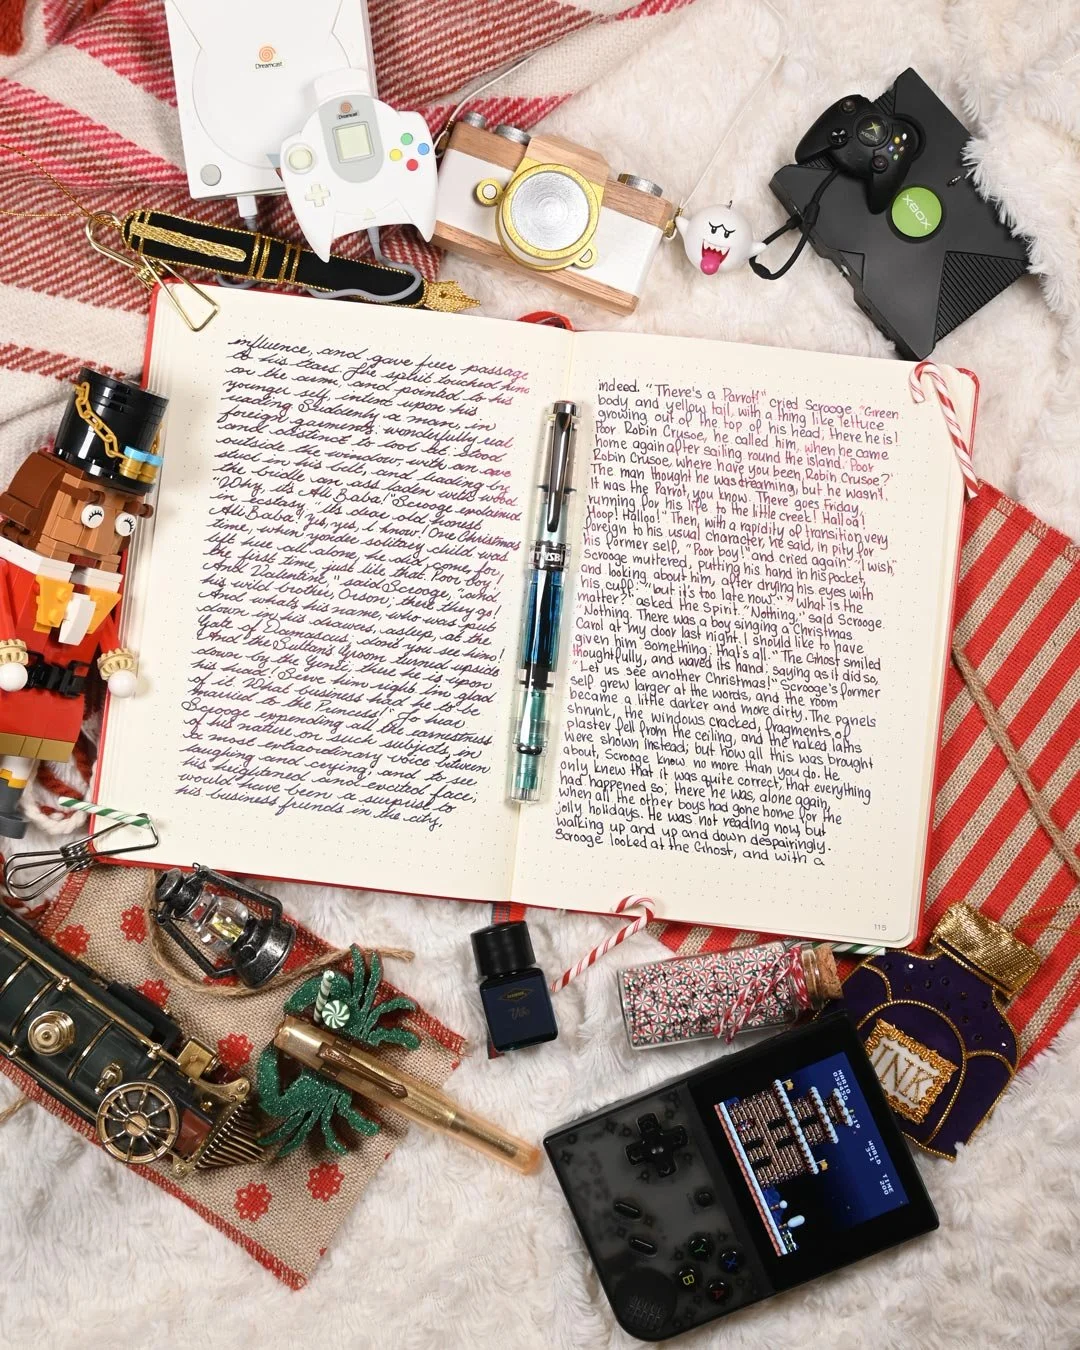 Dreamcast
Dreamcast
XBOX
XBOX
influence, and gave freer passage
to his tears. The spirit touched him
on the arm, and pointed to his
younger self, intent upon his
reading. Suddenly a man, in
foreign garments: wonderfully real
and distinct to look at: stood
outside the window, with an axe
stuck in his belt, and leading by
the bridle an ass laden with wood.
"Why, it's Ali Baba!" Scrooge exclaimed
in ecstasy. "It's dear old honest
Ali Baba! Yes, yes, I know! One Christmas
time, when yonder solitary child was
left here all alone, he did come, for
the first time, just like that. Poor boy!
And Valentine," said Scrooge, "and
his wild brother, Orson; there they go!
And what's his name, who was put
down in his drawers, asleep, at the
Gate of Damascus; don't you see him!
And the Sultan's Groom turned upside
down by the Genii; there he is upon
his head! Serve him right. I'm glad
of it. What business had he to be
married to the Princess!" To hear
Scrooge expending all the earnestness
of his nature on such subjects, in
a most extraordinary voice between
laughing and crying; and to see
his heightened and excited face;
would have been a surprise to
his business friends in the city,
indeed. "There's a Parrot!" cried Scrooge. "Green
body and yellow tail, with a thing like lettuce
growing out of the top of his head; there he is!
Poor Robin Crusoe, he called him, when he came
home again after sailing round the island. 'Poor
Robin Crusoe, where have you been, Robin Crusoe?'
The man thought he was dreaming, but he wasn't.
It was the Parrot, you know. There goes Friday,
running for his life to the little creek! Halloa!
Hoop! Halloo!" Then, with a rapidity of transition very
foreign to his usual character, he said, in pity for
his former self, "Poor boy!" and cried again. "I wish,"
Scrooge muttered, putting his hand in his pocket,
and looking about him, after drying his eyes with
his cuff: "but it's too late now." "What is the
matter?" asked the Spirit. "Nothing," said Scrooge.
"Nothing. There was a boy singing a Christmas
Carol at my door last night. I should like to have
given him something: that's all." The Ghost smiled
thoughtfully, and waved its hand: saying as it did so,
"Let us see another Christmas!" Scrooge's former
self grew larger at the words, and the room
became a little darker and more dirty. The panels
shrunk, the windows cracked; fragments of
plaster fell from the ceiling, and the naked laths
were shown instead; but how all this was brought
about, Scrooge know no more than you do. He
only knew that it was quite correct; that everything
had happened so; there he was, alone again,
when all the other boys had gone home for the
jolly holidays. He was not reading now, but
walking up and up and down despairingly.
Scrooge looked at the Ghost, and with a
115
TWSBI
INK
MARIO
WORLD
TIME
Y
X
B
A